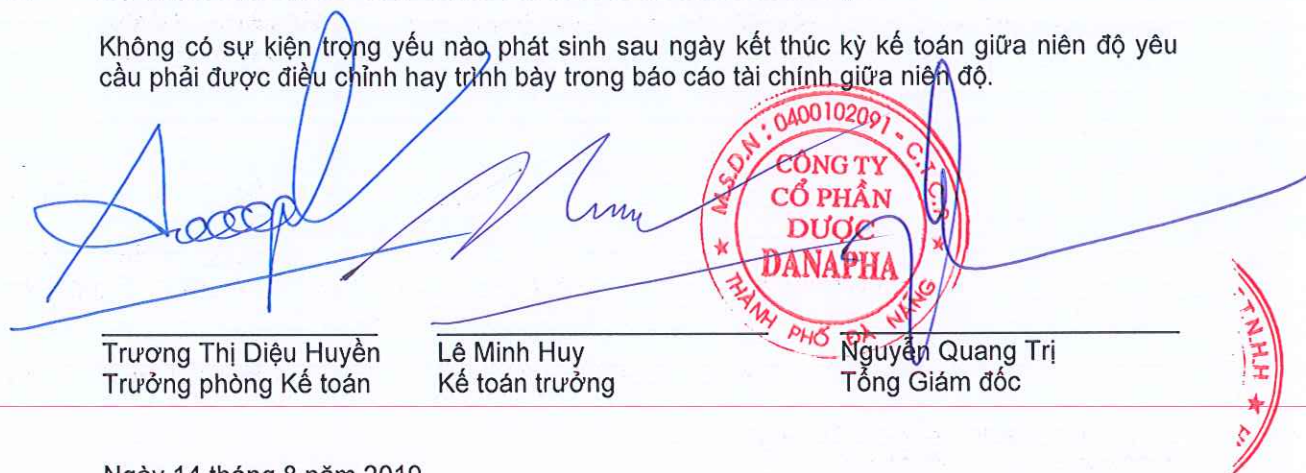 Không có sự kiện trọng yếu nào phát sinh sau ngày kết thúc kỳ kế toán giữa niên độ yêu
cầu phải được điều chỉnh hay trình bày trong báo cáo tài chính giữa niên độ.
M.S.D.N : 0400102091 - C.T.C.P
CÔNG TY
CỔ PHẦN
DƯỢC
DANAPHA
THÀNH PHỐ ĐÀ NẴNG
Trương Thị Diệu Huyền
Trưởng phòng Kế toán
Lê Minh Huy
Kế toán trưởng
Nguyễn Quang Trị
Tổng Giám đốc
T.N.H.H
Ngày 14 tháng 8 năm 2019